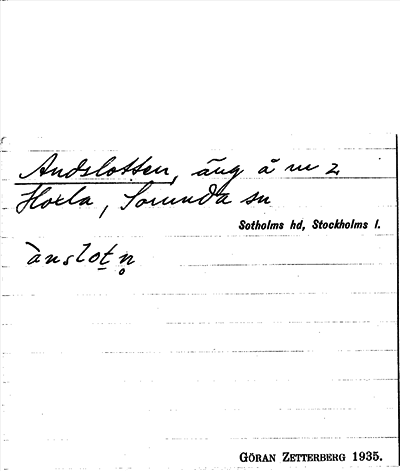 Andslotten, äng å nr 2
Hoxla, Sorunda sn
Sotholms hd, Stockholms l.
ànslotn̥
GÖRAN ZETTERBERG 1935.